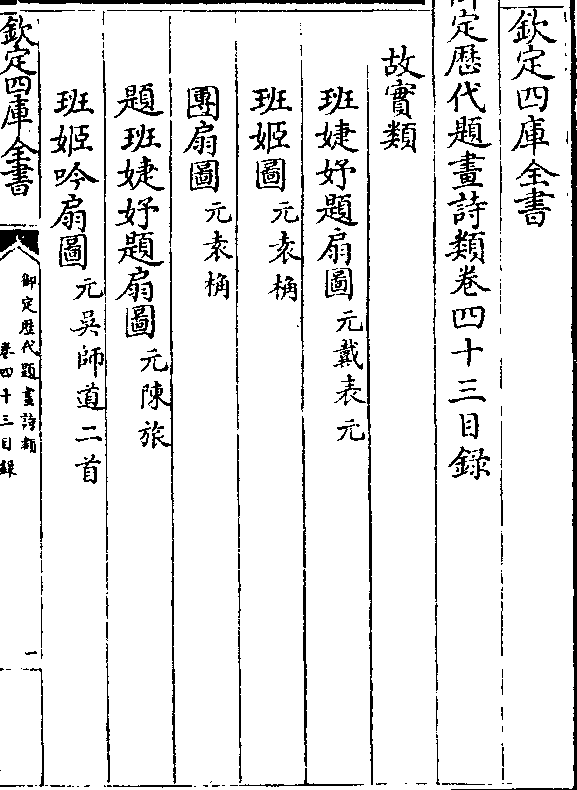 欽定四庫全書
御定歷代題畫詩類卷四十三目録
故實類
班婕妤題扇圖 元戴表元
班姬圖 元袁桷
團扇圖 元袁桷
題班婕妤題扇圖 元陳旅
班姬吟扇圖 元吳師道二首
欽定四庫全書
御定歷代題畫詩類
卷四十三目録
一